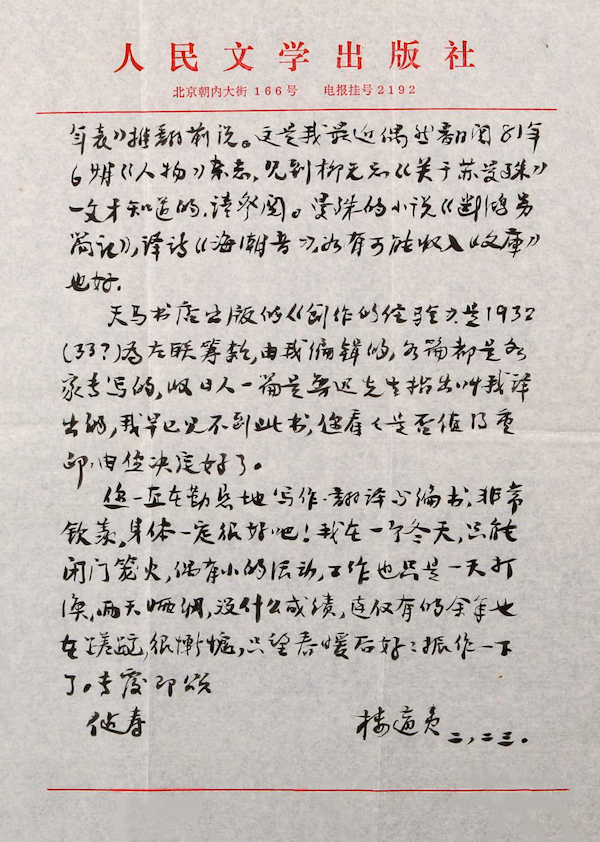 人民文学出版社
北京朝内大街166号 电报挂号2192
年表》推翻前说。这是我最近偶然翻阅81年
6期《人物》杂志,见到柳无忌《关于苏曼殊》
一文才知道的,请参阅。曼殊的小说《断鸿零
雁记》,译诗《海潮音》,如有可能收入《文库》
也好。
天马书店出版的《创作的经验》是1932
(33?)为左联筹款,由我编辑的,各篇都是各
家专写的,收日人一篇是鲁迅先生指出叫我译
出的,我早已见不到此书,您看看是否值得重
印,由您决定好了。
您一直在勤恳地写作、翻译与编书,非常
钦羡,身体一定很好吧!我在一个冬天,只能
闭门笼火,偶有小的活动,工作也只是一天打
渔,两天晒网,没什么成绩,连仅有的余年也
在蹉跎,很惭愧,只望春暖后好好振作一下
了。专复即颂
健寿
楼适夷 二,二三。